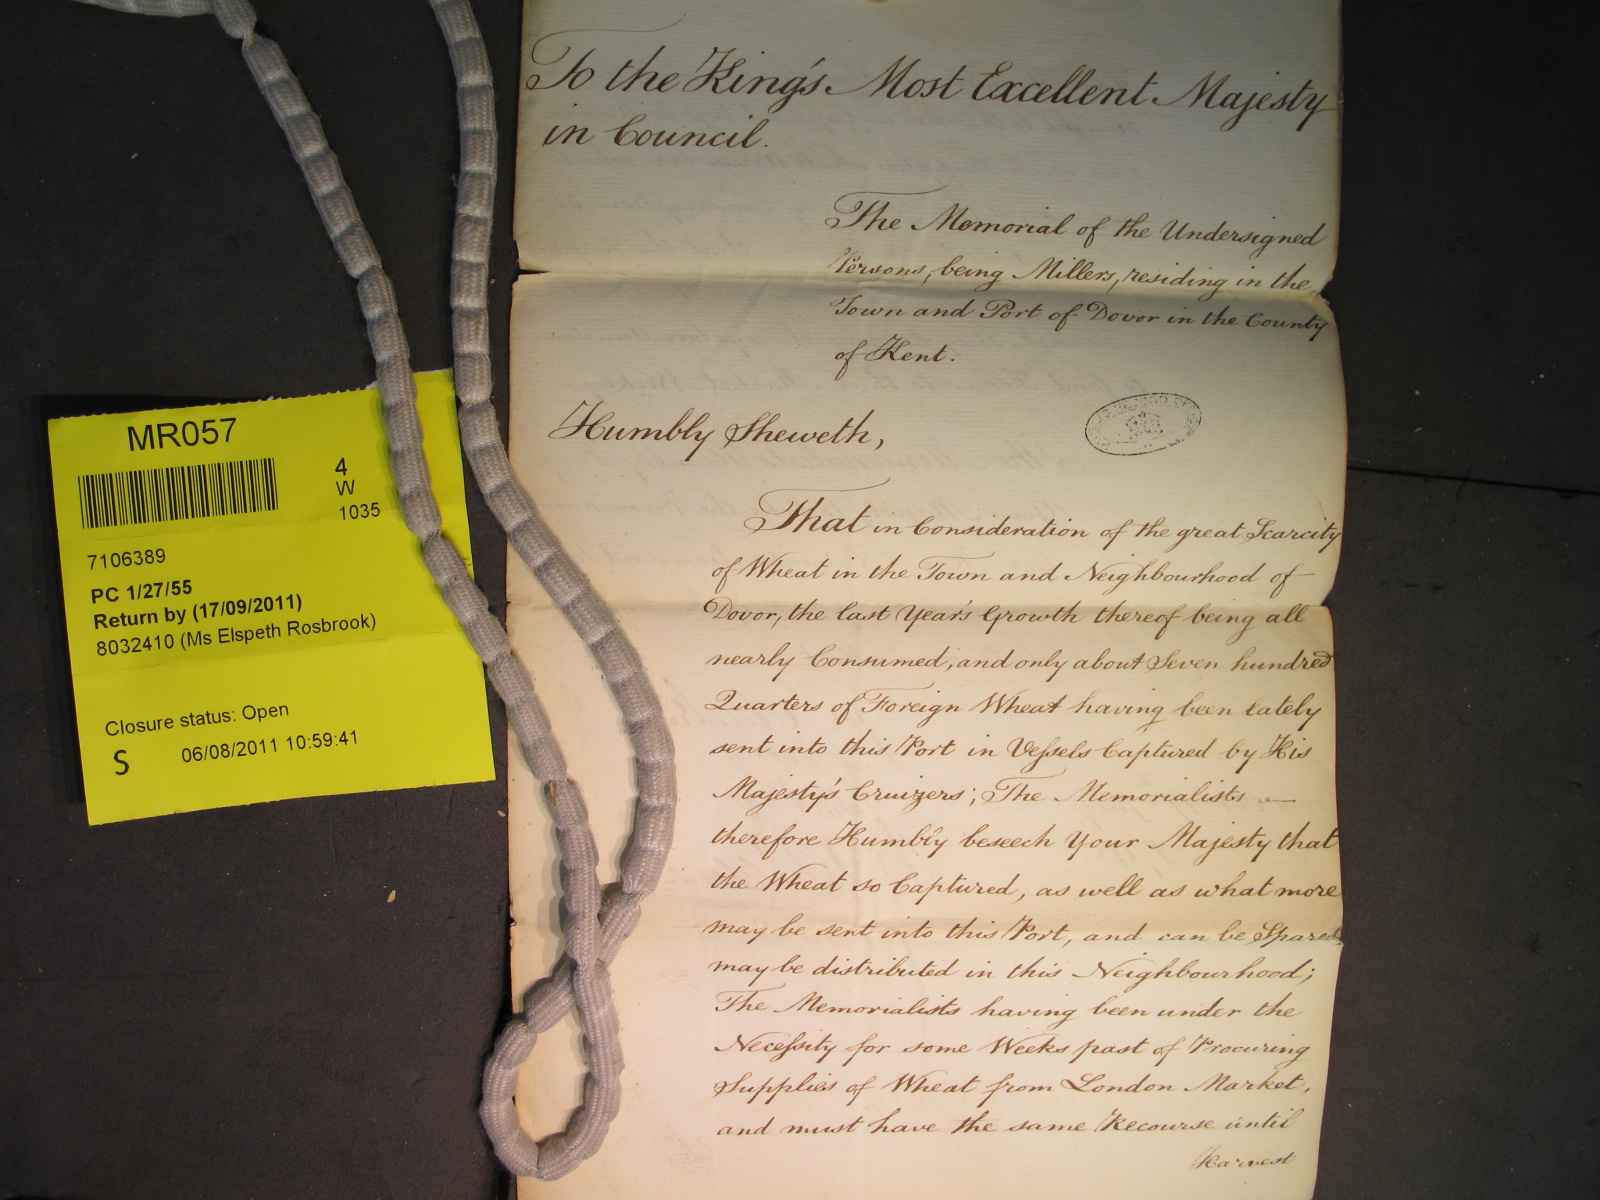 To the King's Most Excellent Majesty
in Council.
The Memorial of the Undersigned
Persons, being Millers, residing in the
Town and Port of Dovor in the County
of Kent.
Humbly Sheweth,
That in Consideration of the great Scarcity
of Wheat in the Town and Neighbourhood of
Dovor, the last Year's Growth thereof being all
nearly Consumed, and only about Seven hundred
Quarters of Foreign Wheat having been lately
sent into this Port in Vessels Captured by His
Majesty's Cruizers; The Memorialists
therefore Humbly beseech Your Majesty that
the Wheat so Captured, as well as what more
may be sent into this Port, and can be Spared
may be distributed in this Neighbourhood;
The Memorialists having been under the
Necessity for some Weeks past of Procuring
Supplies of Wheat from London Market,
and must have the same Recourse until
Harvest
MR057
4
W
1035
7106389
PC 1/27/55
Return by (17/09/2011)
8032410 (Ms Elspeth Rosbrook)
Closure status: Open
S 06/08/2011 10:59:41